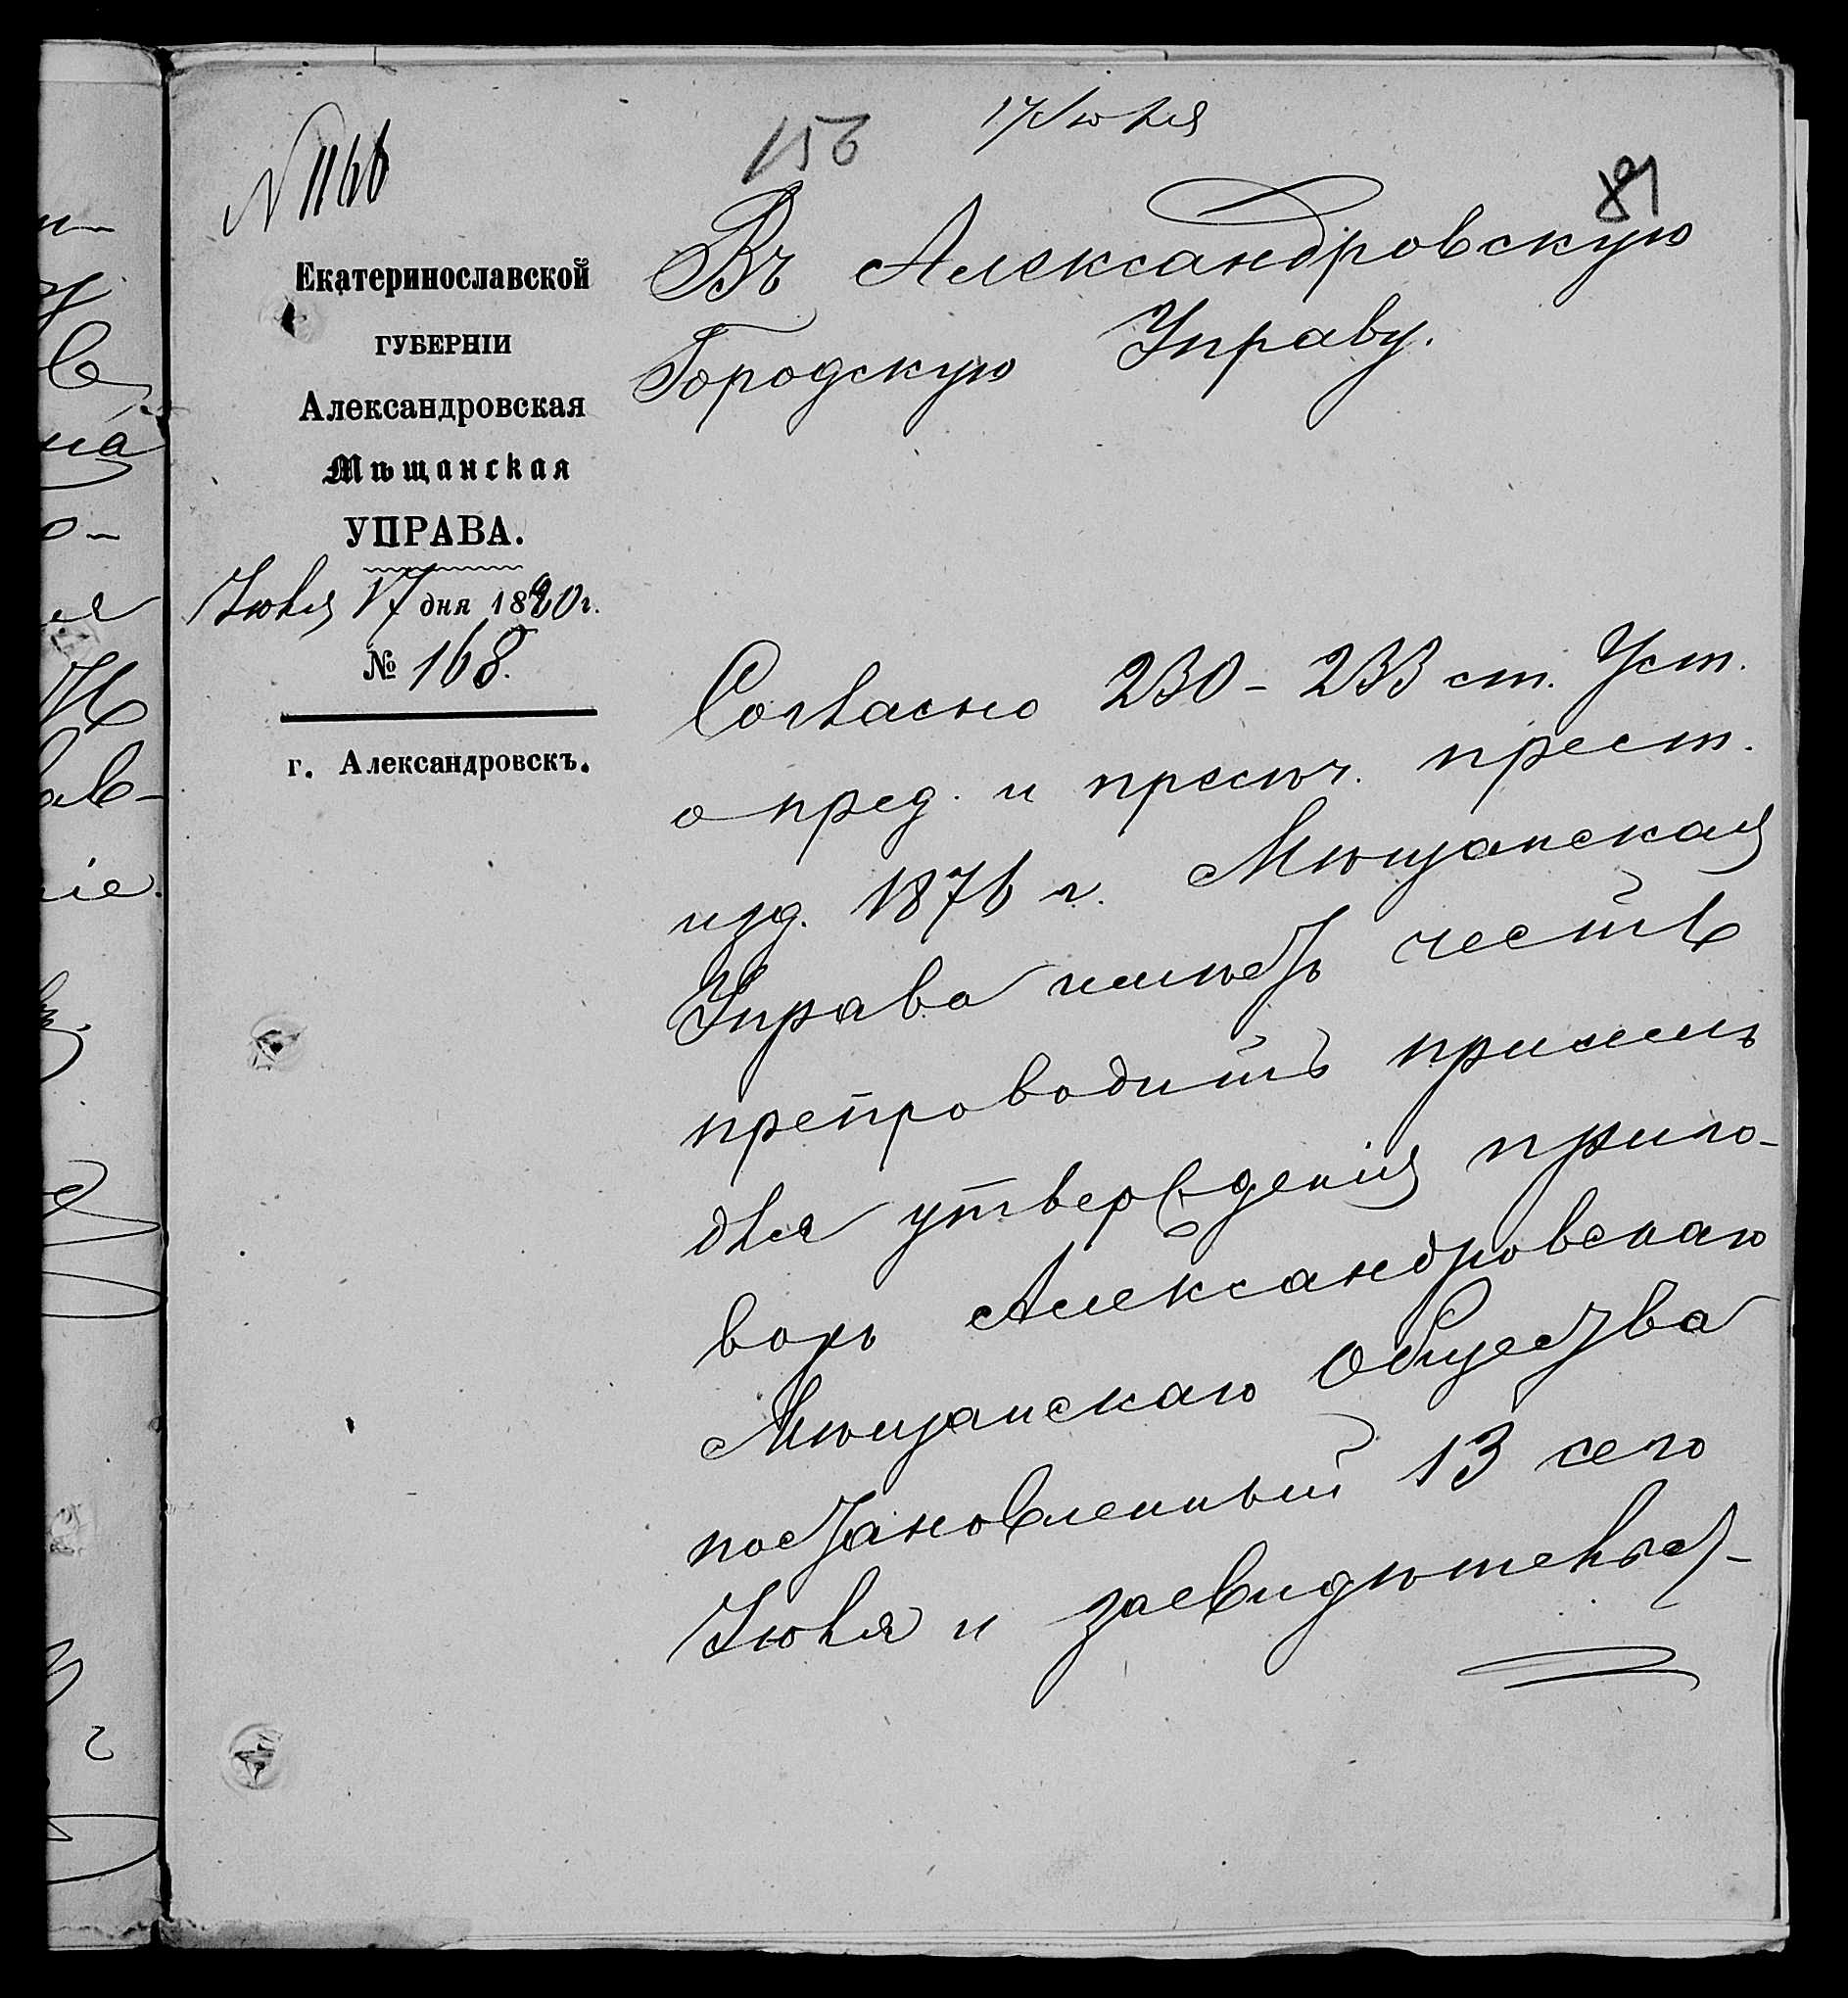 17 Июля
156
81
№ 1166
Екатеринославской
ГУБЕРНІИ
Александровская
Мѣщанская
УПРАВА.
Июля 17 дня 1880 г.
№ 168.
г. Александровскъ.
Въ Александровскую
Городскую Управу.
Согласно 230 - 233 ст. Уст.
о пред. и пресѣч. прест.
изд. 1876 г. Мѣщанская
Управа имѣетъ честь
препроводить при семъ
для утвержденія приго-
воръ Александровскаго
Мѣщанскаго Общества
постановленный 13 сего
Июля и засвидѣтельст-